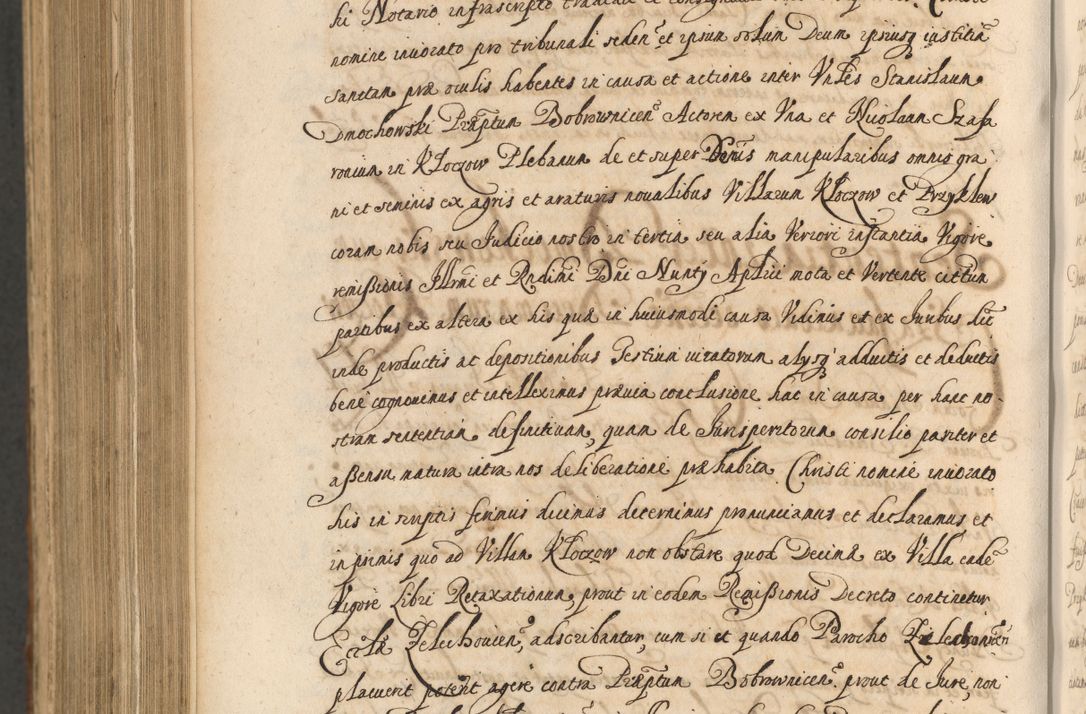 hi Notario infrascripto
nomine inuocato pro tribunali seden et ipsum solum Deum ipsiusq iustitia
sanctam præ oculis habentes in causa et actione inter Vnles Stanislaum
Dmochowski Præptum Bobrownicen Actorem ex Vna et Nicolaum Szafa
ronium in Kłoczow Plebanum de et super Decimis manipularibus omnis gra
ni et seminis ex agris et araturis noualibus Villarum Kłoczow et Przyklew
coram nobis seu Judicio nostro in tertia seu alia Veriori instantia Vigore
remißionis Jllrmi et Rndimi Dni Nuntÿ Aplici mota et Vertente citatum
partibus ex altera ex his quæ in huiusmodi causa Vidimus et ex Juribus hic
inde productis ac depositionibus Testium iuratorum alysq adductis et deductis
bene cognouimus et intelleximus præuia conclusione hac in causa per hanc no-
stram sententiam definitiuam, quam de Jurisperitorum consilio pariter et
aßensu matura intra nos deliberatione præhabita Christi nomine inuocato
his in scriptis ferimus dicimus decernimus pronunciamus et declaramus et
inprimis quo ad Villam Kłoczow non obstare quod Decimæ ex Villa eade
Vigore Libri Retaxationum, prout in eodem Remißionis Decreto continetur
Ecclæ Zelechouien, adscribantur, cum si et quando Parocho Zelechouien
placuerit poterit agere contra Præptum Bobrownicen prout de Jure, non